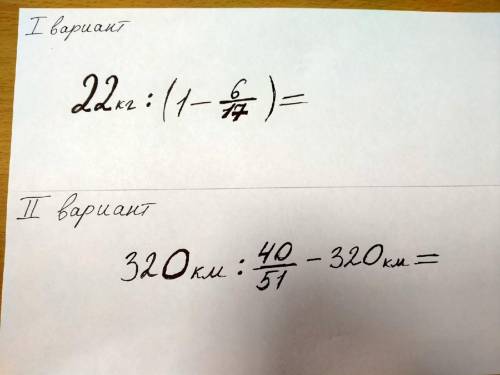 I вариант
22кг : (1 - 6/17) =
II вариант
320км : 40/51 - 320км =